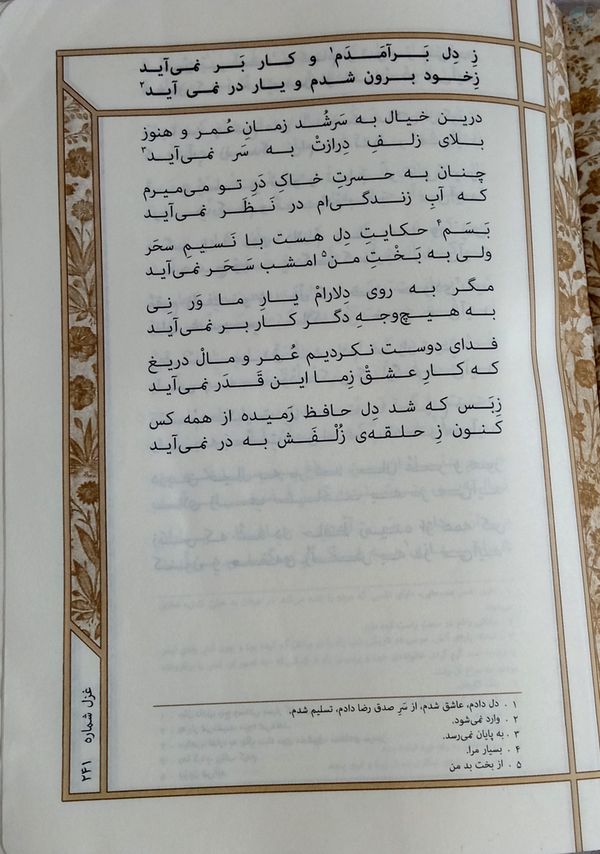 زِ دِل بَـرآمَـدَم۱ و کـار بَـر نمی‌آیـد
زِخـود بـرون شـدم و یـار در نمی آیـد۲
دریـن خیـال بـه سَـرشُـد زمـانِ عُـمـر و هنوز
بـلای زلـفِ دِرازتْ بـه سَـر نمی‌آیـد۳
چنـان بـه حسـرتِ خـاکِ دَرِ تـو می‌میـرم
کـه آبِ زنـدگـی‌ام در نَـظَـر نمی‌آیـد
بَـسَـم۴ حکایـتِ دِل هسـت بـا نَسـیمِ سـحَر
ولی بـه بَـخْـتِ مـن۵ امـشب سَـحَر نمی‌آیـد
مـگـر بـه روی دِلارامْ یـارِ مـا وَر نِـی
بـه هیـچ‌وجـهِ دگـر کـار بـر نمی‌آیـد
فـدای دوسـت نکـردیم عُـمـر و مـالْ دریـغ
کـه کـارِ عـشقْ زِمـا ایـن قَـدَر نمی‌آیـد
زِبَـس کـه شـد دِل حافـظ رَمیـده از همـه کس
کَـنون زِ حـلقـه‌ی زُلْـفَـش بـه در نمی‌آیـد
۱ . دل دادم، عاشق شدم، از سَرِ صدق رضا دادم، تسلیم شدم.
۲ . وارد نمی‌شود.
۳ . به پایان نمی‌رسد.
۴ . بسیار مرا.
۵ . از بخت بد من
غزل شماره ۲۴۱